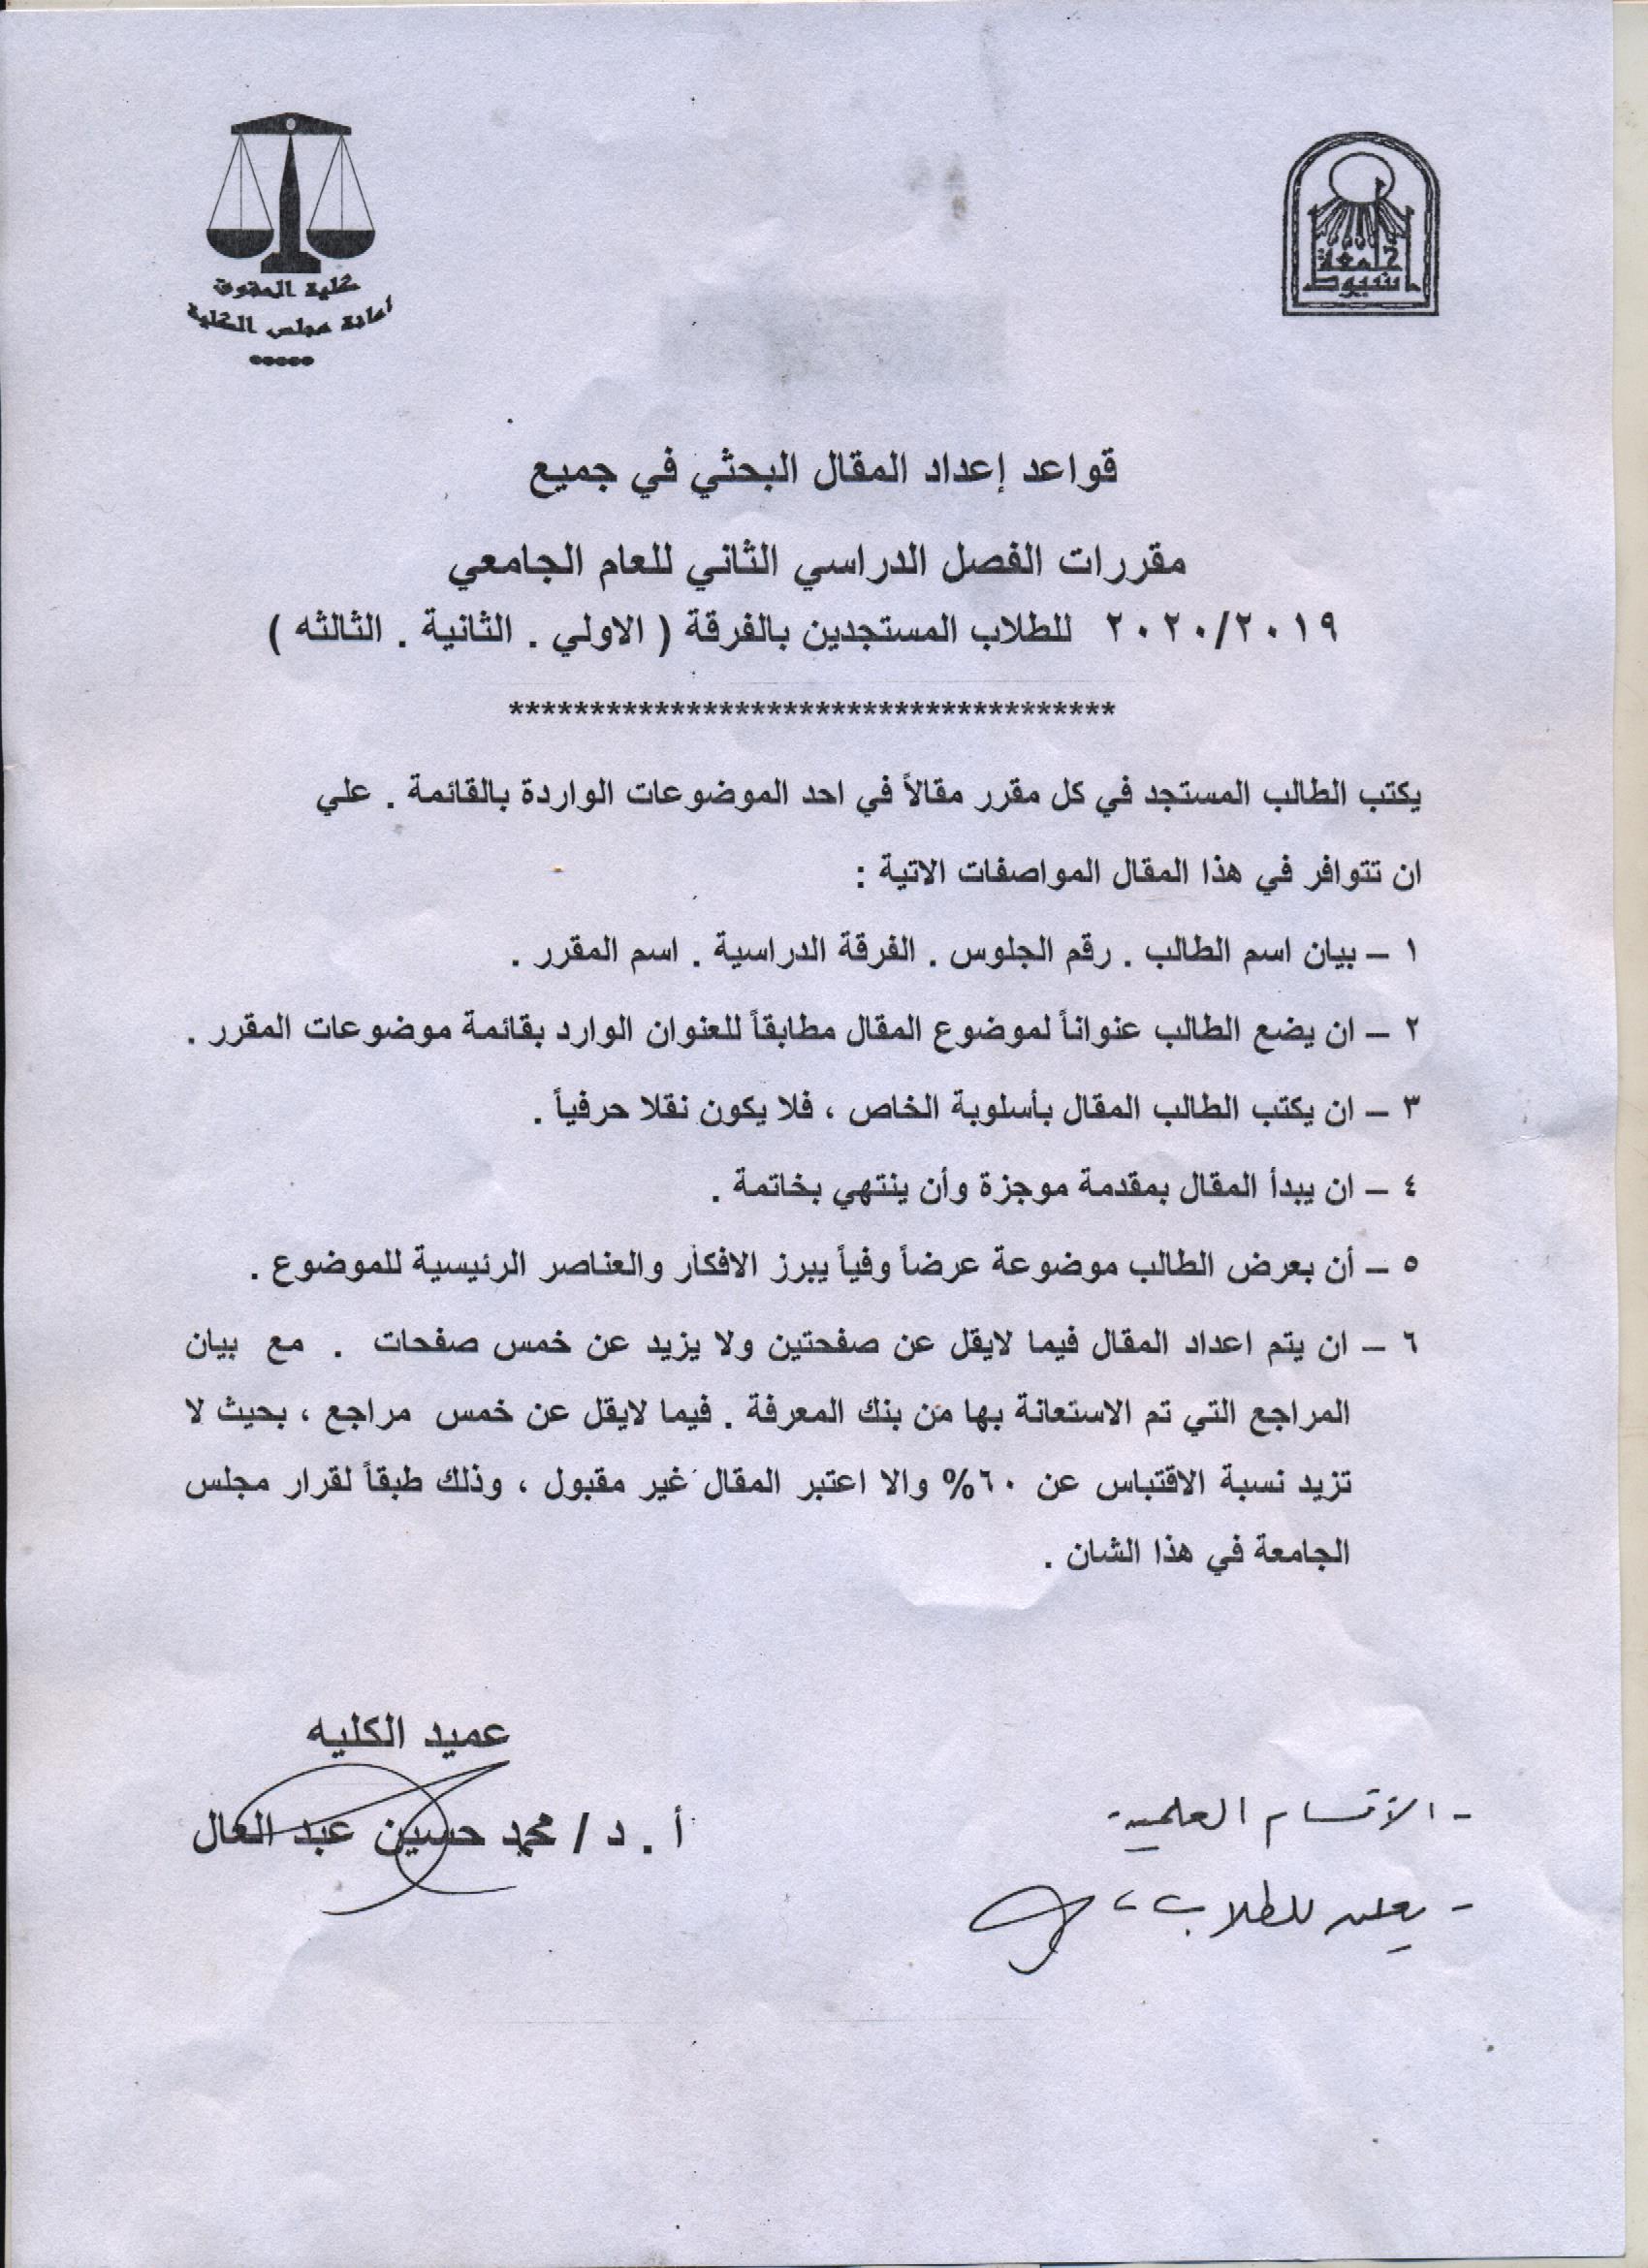 جامعة
أسيوط
كلية الحقوق
أمانة مجلس الكلية
قواعد إعداد المقال البحثي في جميع
مقررات الفصل الدراسي الثاني للعام الجامعي
٢٠٢٠/٢٠١٩ للطلاب المستجدين بالفرقة ( الاولي . الثانية . الثالثه )
**************************************
يكتب الطالب المستجد في كل مقرر مقالاً في احد الموضوعات الواردة بالقائمة . علي
ان تتوافر في هذا المقال المواصفات الاتية :
١ – بيان اسم الطالب . رقم الجلوس . الفرقة الدراسية . اسم المقرر .
٢ – ان يضع الطالب عنواناً لموضوع المقال مطابقاً للعنوان الوارد بقائمة موضوعات المقرر .
٣ – ان يكتب الطالب المقال بأسلوبة الخاص ، فلا يكون نقلا حرفياً .
٤ – ان يبدأ المقال بمقدمة موجزة وأن ينتهي بخاتمة .
٥ – أن بعرض الطالب موضوعة عرضاً وفياً يبرز الافكار والعناصر الرئيسية للموضوع .
٦ – ان يتم اعداد المقال فيما لايقل عن صفحتين ولا يزيد عن خمس صفحات . مع بيان
المراجع التي تم الاستعانة بها من بنك المعرفة . فيما لايقل عن خمس مراجع ، بحيث لا
تزيد نسبة الاقتباس عن ٦٠% والا اعتبر المقال غير مقبول ، وذلك طبقاً لقرار مجلس
الجامعة في هذا الشان .
عميد الكليه
أ . د / محمد حسين عبد العال
- الأقسام العلمية
- يعلن للطلاب